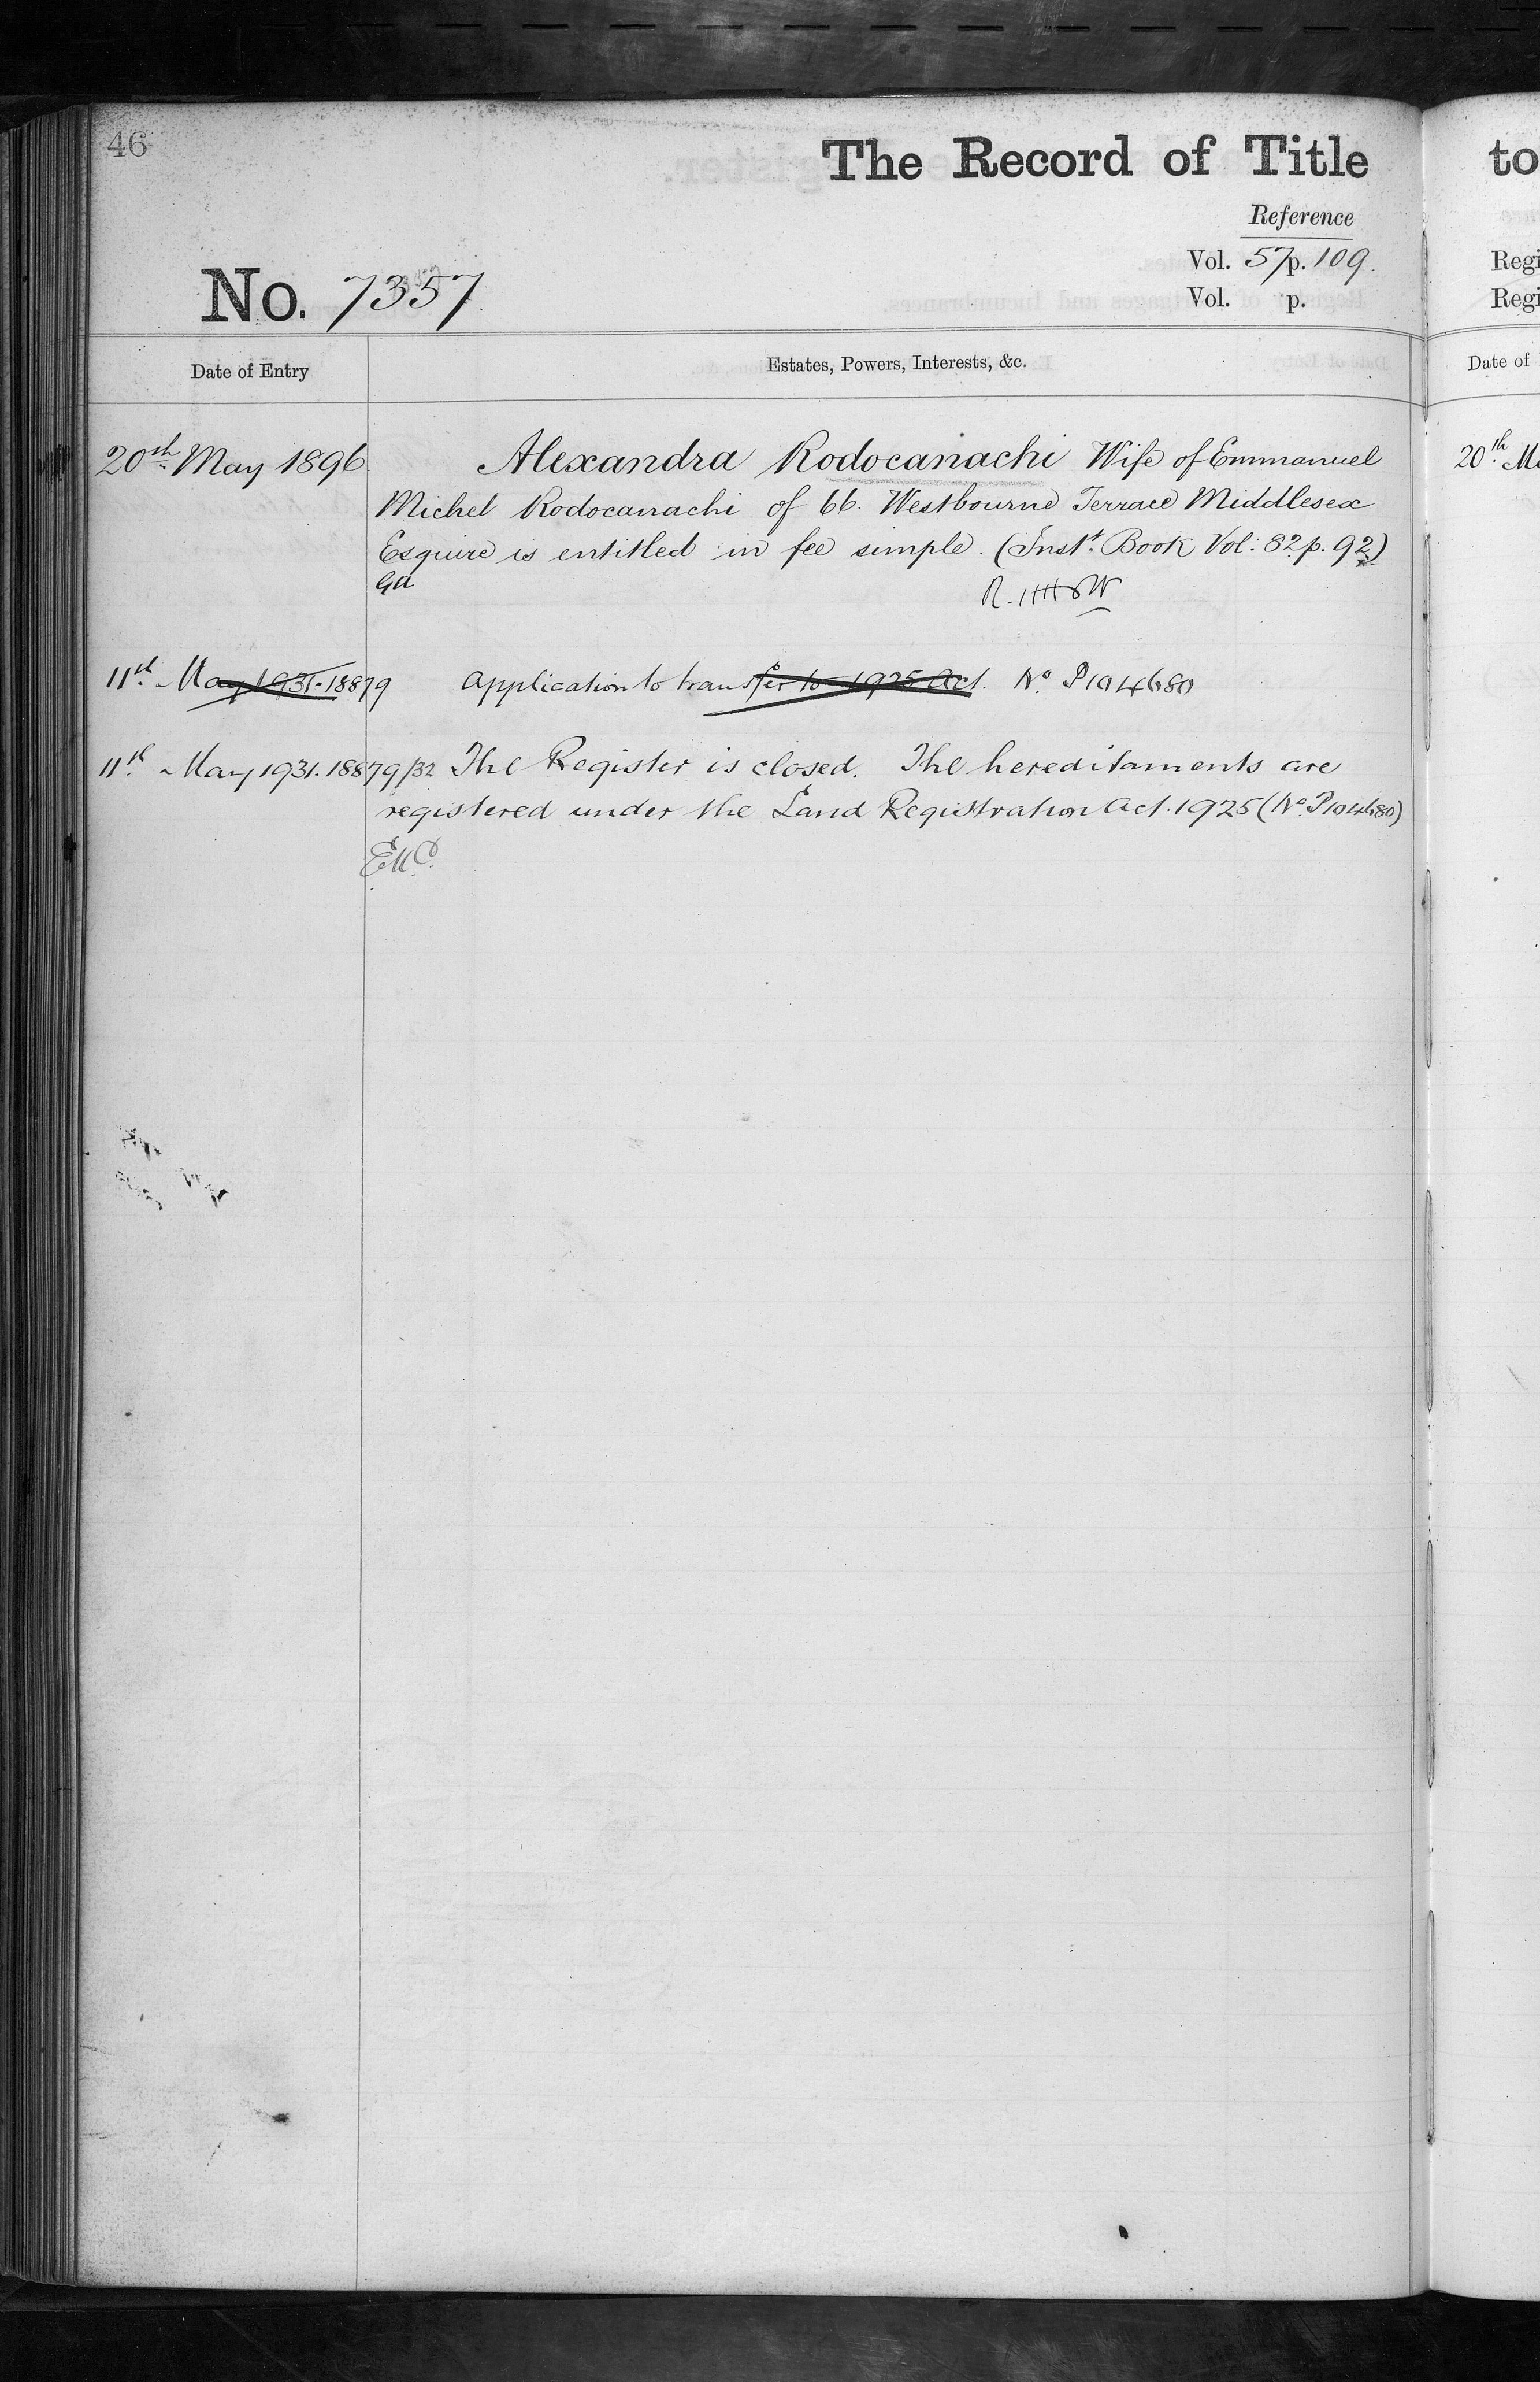 46
The Record of Title
to
Reference
Vol. 57 p. 109.
Vol. p.
Regi
Regi
No. 7357
Date of Entry
Estates, Powers, Interests, &c.
Date of
20th May 1896
Alexandra Rodocanachi Wife of Emmanuel
20th Ma
Michel Rodocanachi of 66. Westbourne Terrace Middlesex
Esquire is entitled in fee simple. (Instt. Book Vol: 82 p. 92)
11th May 1931. 18879 Application to transfer to 1925 Act. No. P104680
11th May 1931. 18879/32 The Register is closed. The hereditaments are
registered under the Land Registration Act. 1925 (No. P104680)